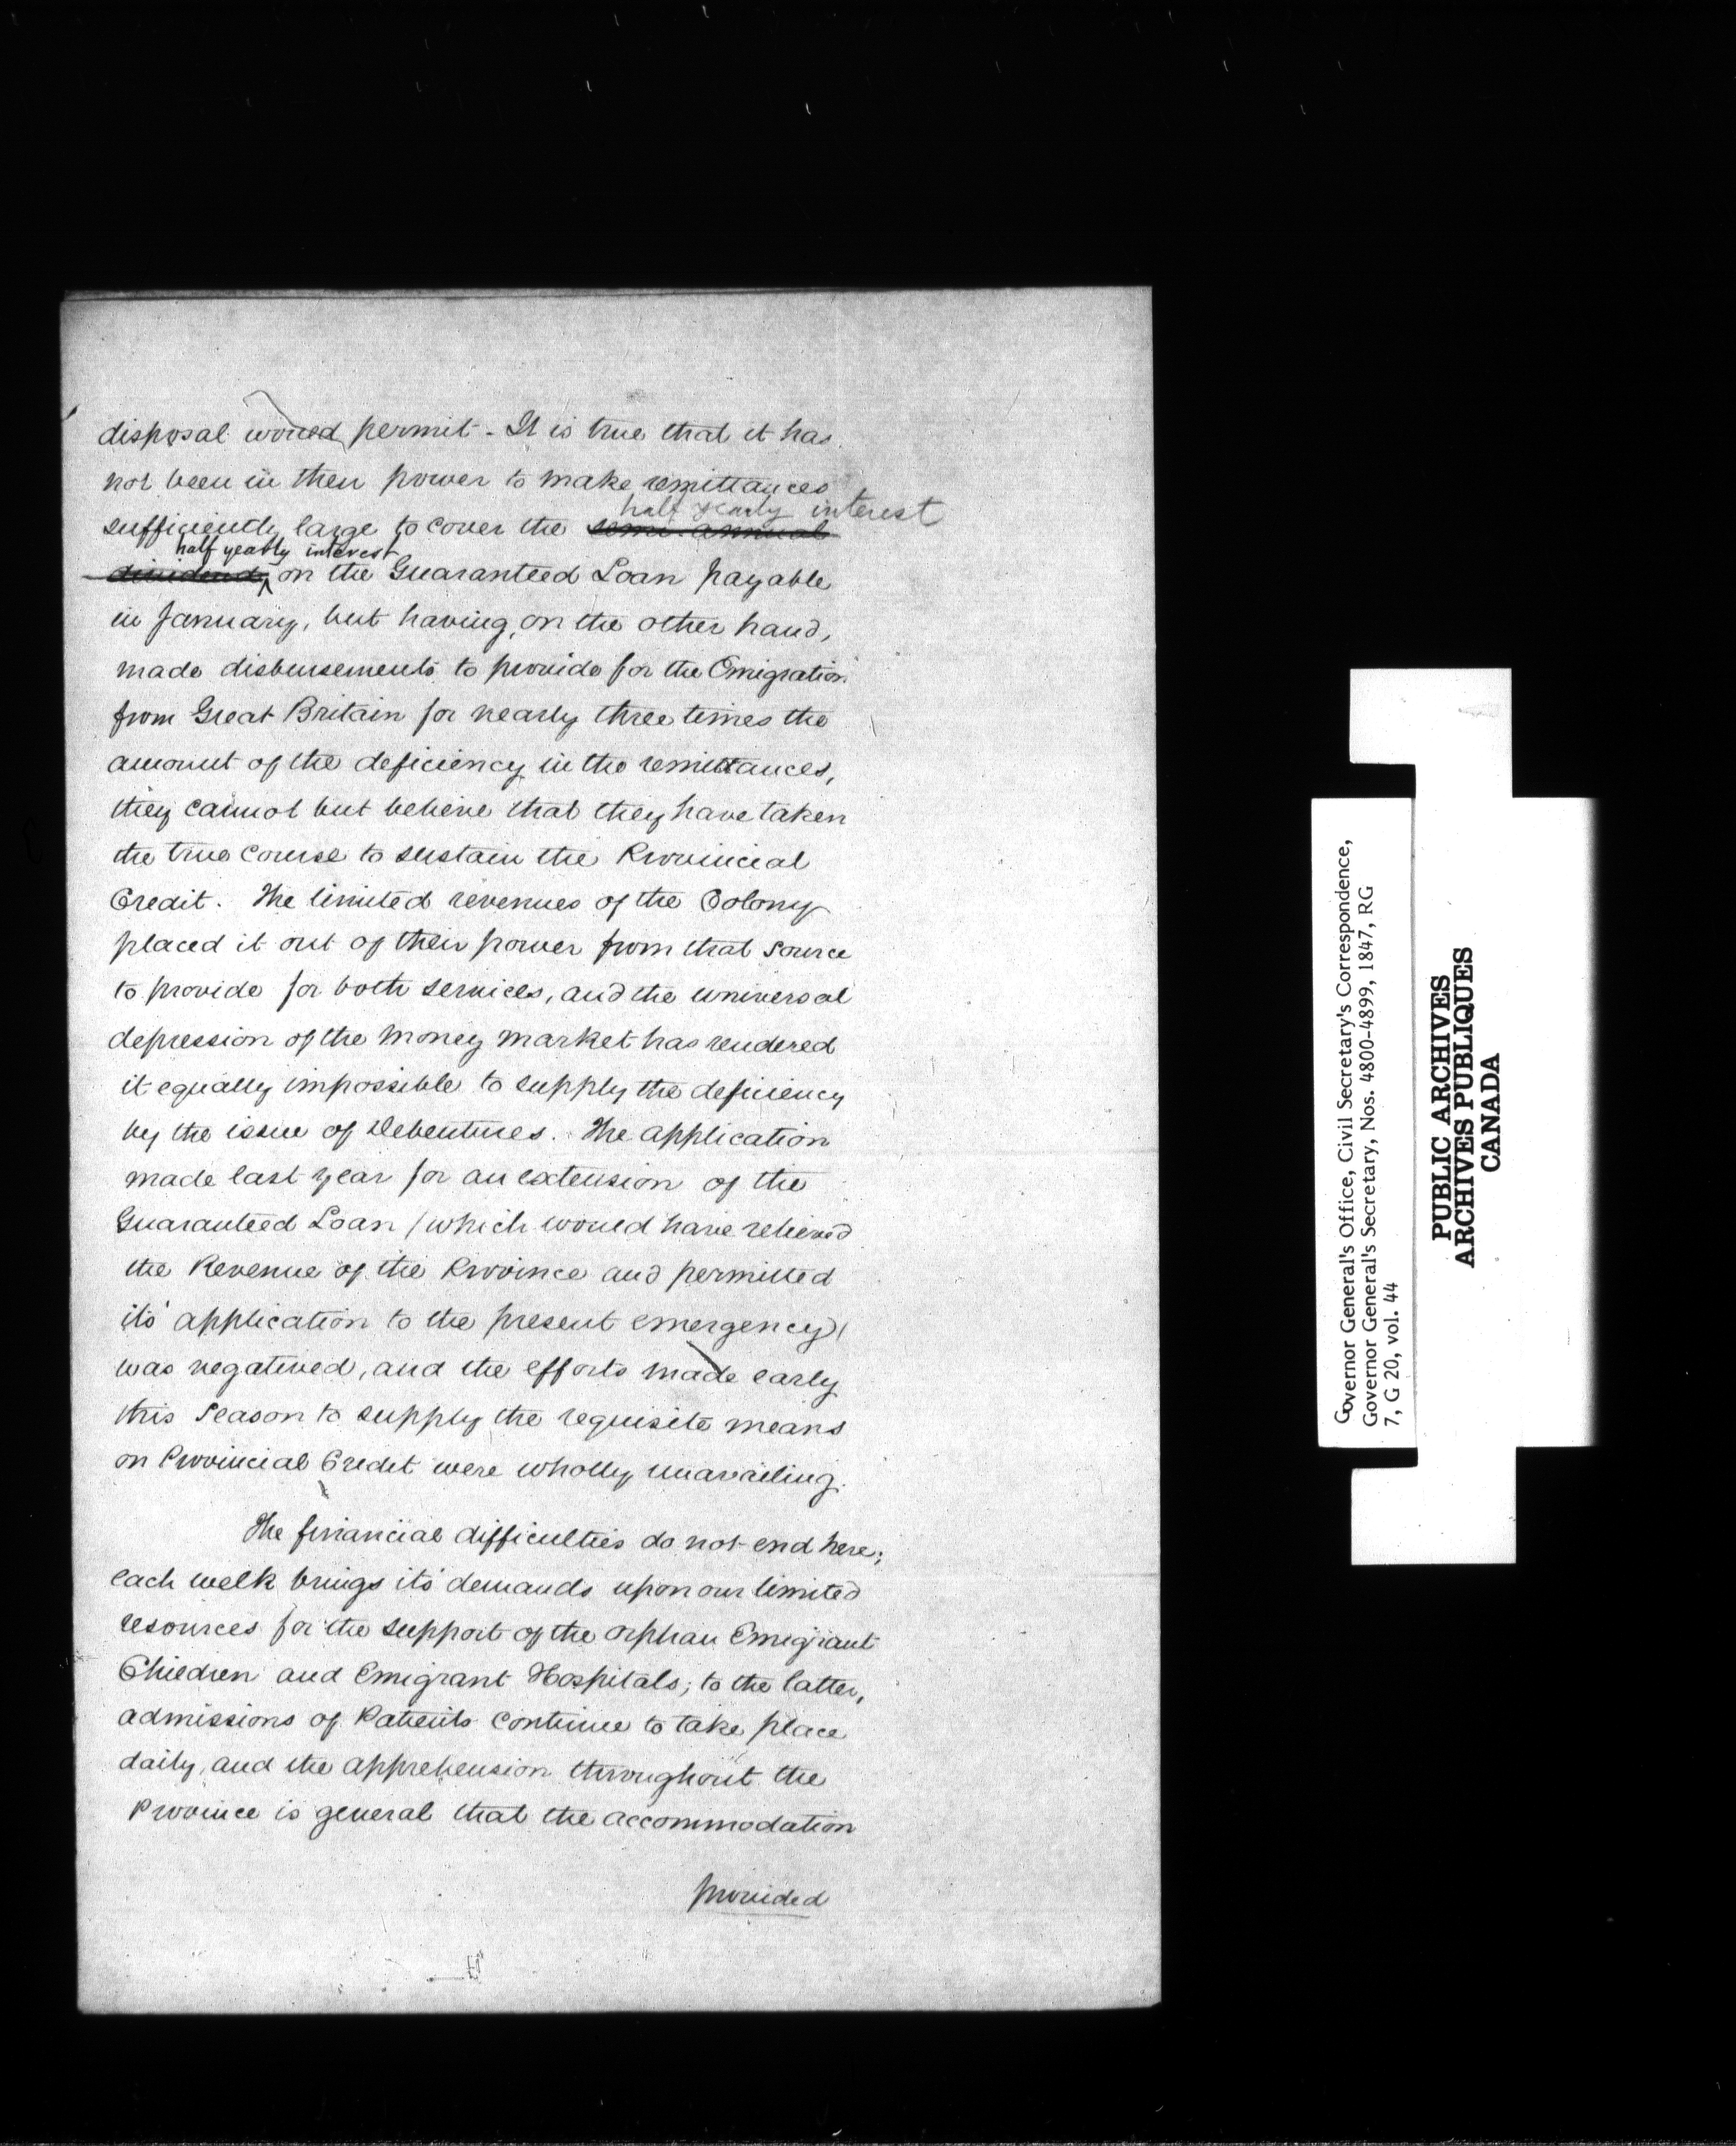 disposal would permit - It is true that it has
not been in their power to make remittances
half yearly interest
sufficiently large to cover the semi-annual
half yearly interest
dividend on the Guaranteed Loan payable
in January, but having, on the other hand,
made disbursements to provide for the Emigration
from Great Britain for nearly three times the
amount of the deficiency in the remittances,
they cannot but believe that they have taken
the true course to sustain the Provincial
Credit. The limited revenues of the Colony
placed it out of their power from that source
to provide for both services, and the universal
depression of the money market has rendered
it equally impossible to supply the deficiency
by the issue of Debentures. The application
made last year for an extension of the
Guaranteed Loan (which would have relieved
the Revenue of the Province and permitted
its' application to the present emergency)
was negatived, and the efforts made early
this Season to supply the requisite means
on Provincial Credit were wholly unavailing.
The financial difficulties do not end here;
each week brings its' demands upon our limited
resources for the support of the orphan Emigrant
Children and Emigrant Hospitals; to the latter,
admissions of Patients continue to take place
daily, and the apprehension throughout the
Province is general that the accommodation
provided
Governor General's Office, Civil Secretary's Correspondence,
Governor General's Secretary, Nos. 4800-4899, 1847, RG
7, G 20, vol. 44
PUBLIC ARCHIVES
ARCHIVES PUBLIQUES
CANADA